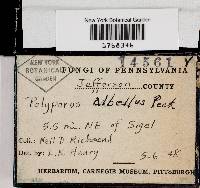 New York Botanical Garden
14561
NEW YORK
BOTANICAL
GARDEN
FUNGI OF PENNSYLVANIA
Jefferson COUNTY
Polyporus albellus Peck
5.5 mi. NE of Sigel
Coll.: Neil D Richmond
Det.: L.K. Henry 5-6 48
HERBARIUM, CARNEGIE MUSEUM, PITTSBURGH